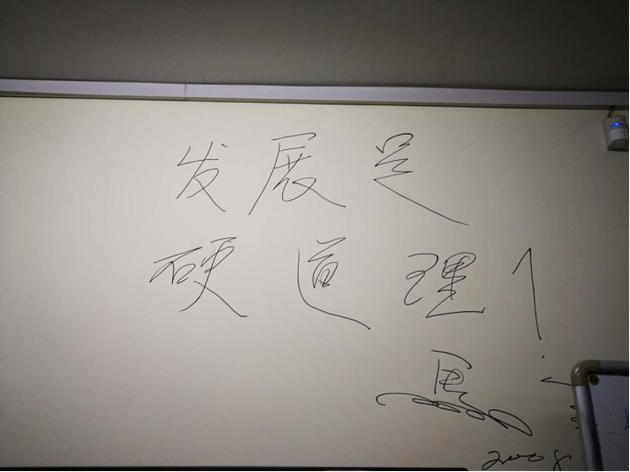 发展是
硬道理!
2008